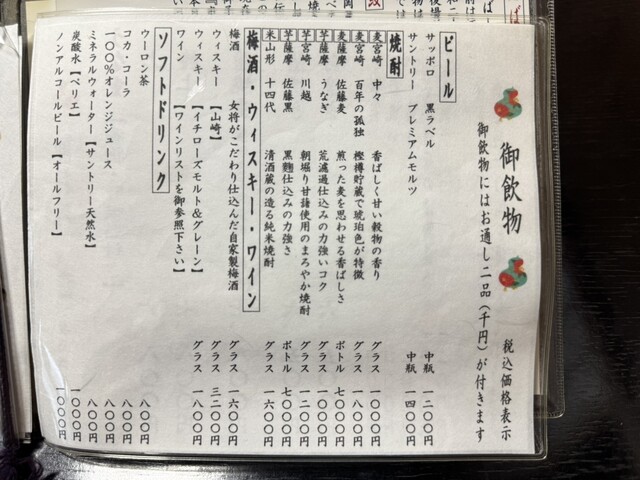 御飲物
御飲物にはお通し二品(千円)が付きます
税込価格表示
ビール
サッポロ 黒ラベル 中瓶 一二〇〇円
サントリー プレミアムモルツ 中瓶 一四〇〇円
焼酎
麦 宮崎 中々 香ばしく甘い穀物の香り グラス 一〇〇〇円
麦 宮崎 百年の孤独 樫樽貯蔵で琥珀色が特徴 グラス 一八〇〇円
麦 薩摩 佐藤麦 煎った麦を思わせる香ばしさ ボトル 七〇〇〇円
芋 薩摩 うなぎ 荒濾過仕込みの力強いコク グラス 一〇〇〇円
芋 宮崎 川越 朝堀り甘藷使用のまろやか焼酎 グラス 一二〇〇円
芋 薩摩 佐藤黒 黒麹仕込みの力強さ ボトル 七〇〇〇円
米 山形 十四代 清酒蔵の造る純米焼酎 グラス 一六〇〇円
梅酒・ウィスキー・ワイン
梅酒 女将がこだわり仕込んだ自家製梅酒 グラス 一六〇〇円
ウィスキー 【山崎】 グラス 三二〇〇円
ウィスキー 【イチローズモルト&グレーン】 グラス 一八〇〇円
ワイン 【ワインリストを御参照下さい】
ソフトドリンク
ウーロン茶 八〇〇円
コカ・コーラ 八〇〇円
100%オレンジジュース 八〇〇円
ミネラルウォーター【サントリー天然水】 八〇〇円
炭酸水【ペリエ】 一〇〇〇円
ノンアルコールビール【オールフリー】 一〇〇〇円